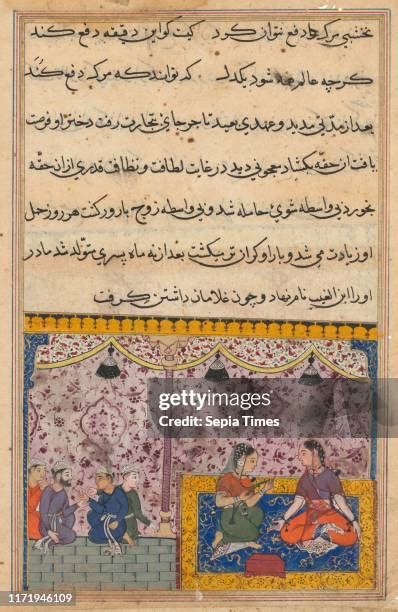 نخشبی مرک را دفع نتوان کرد کیت کو این دقیقه دفع کند
کرچه عالم همه شود یکدل که تواند که مرک دفع کند
بعد از مدتی مدید و عهدی بعید تاجر جای بتجارت رفت دختر او فرصت
یافت ان حقه بکشاد معجونی دید در غایت لطافت و نظافت قدری از ان حقه
بخورد بی واسطه شوی حامله شد و بی واسطه زوج بارور کشت هر روز حمل
او زیادت می شد و بار او کران تر میکشت بعد از نه ماه پسری متولد شد مادر
او را ابن الغیب نام نهاد و چون غلامان داشتن کرفت
gettyimages
Credit: Sepia Times
1171946109